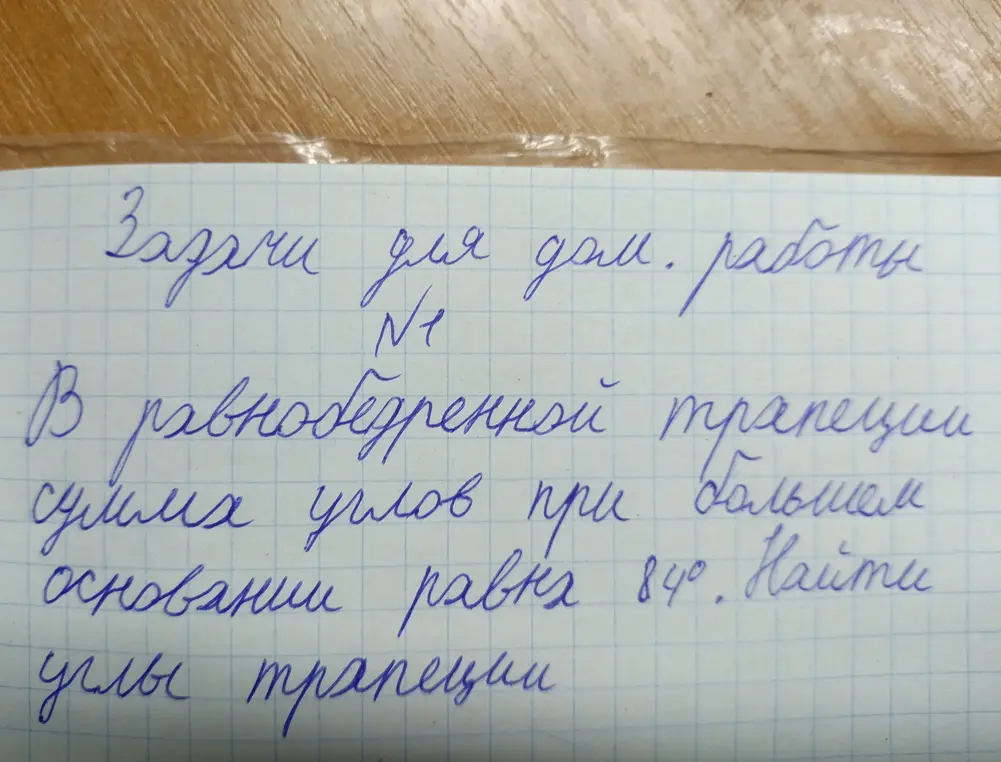 Задачи для дом. работы
№1
В равнобедренной трапеции
сумма углов при большем
основании равна 84°. Найти
углы трапеции